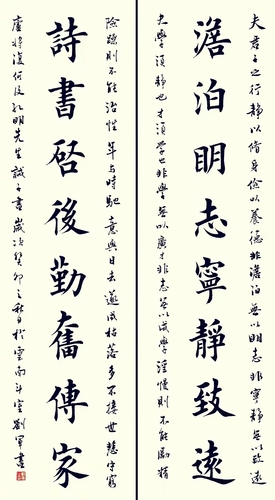 夫君子之行靜以脩身儉以養德非澹泊無以明志非寧靜無以致遠
澹泊明志寧靜致遠
夫學須靜也才須學也非學無以廣才非志無以成學淫慢則不能勵精
險躁則不能治性年與時馳意與日去遂成枯落多不接世悲守窮
詩書啓後勤奮傳家
廬將復何及孔明先生誡子書歲次癸卯之秋日於雲南斗室劉軍書